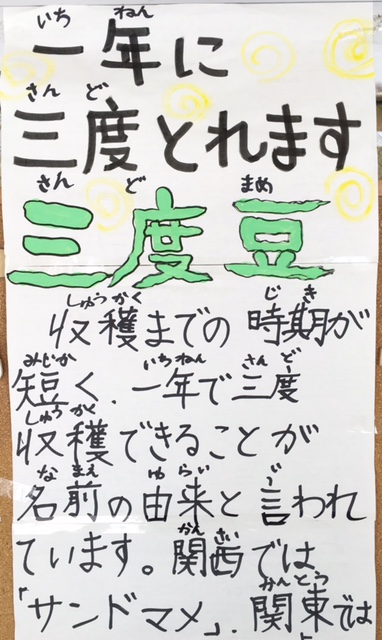 いち ねん
一年に
さん ど
三度とれます
さん ど まめ
三度豆
しゅうかく じ き
収穫までの時期が
みじか いちねん さん ど
短く、一年で三度
しゅうかく
収穫できることが
な まえ ゆ らい い
名前の由来と言われ
かん さい
ています。関西では
かんとう
「サンドマメ」、関東では